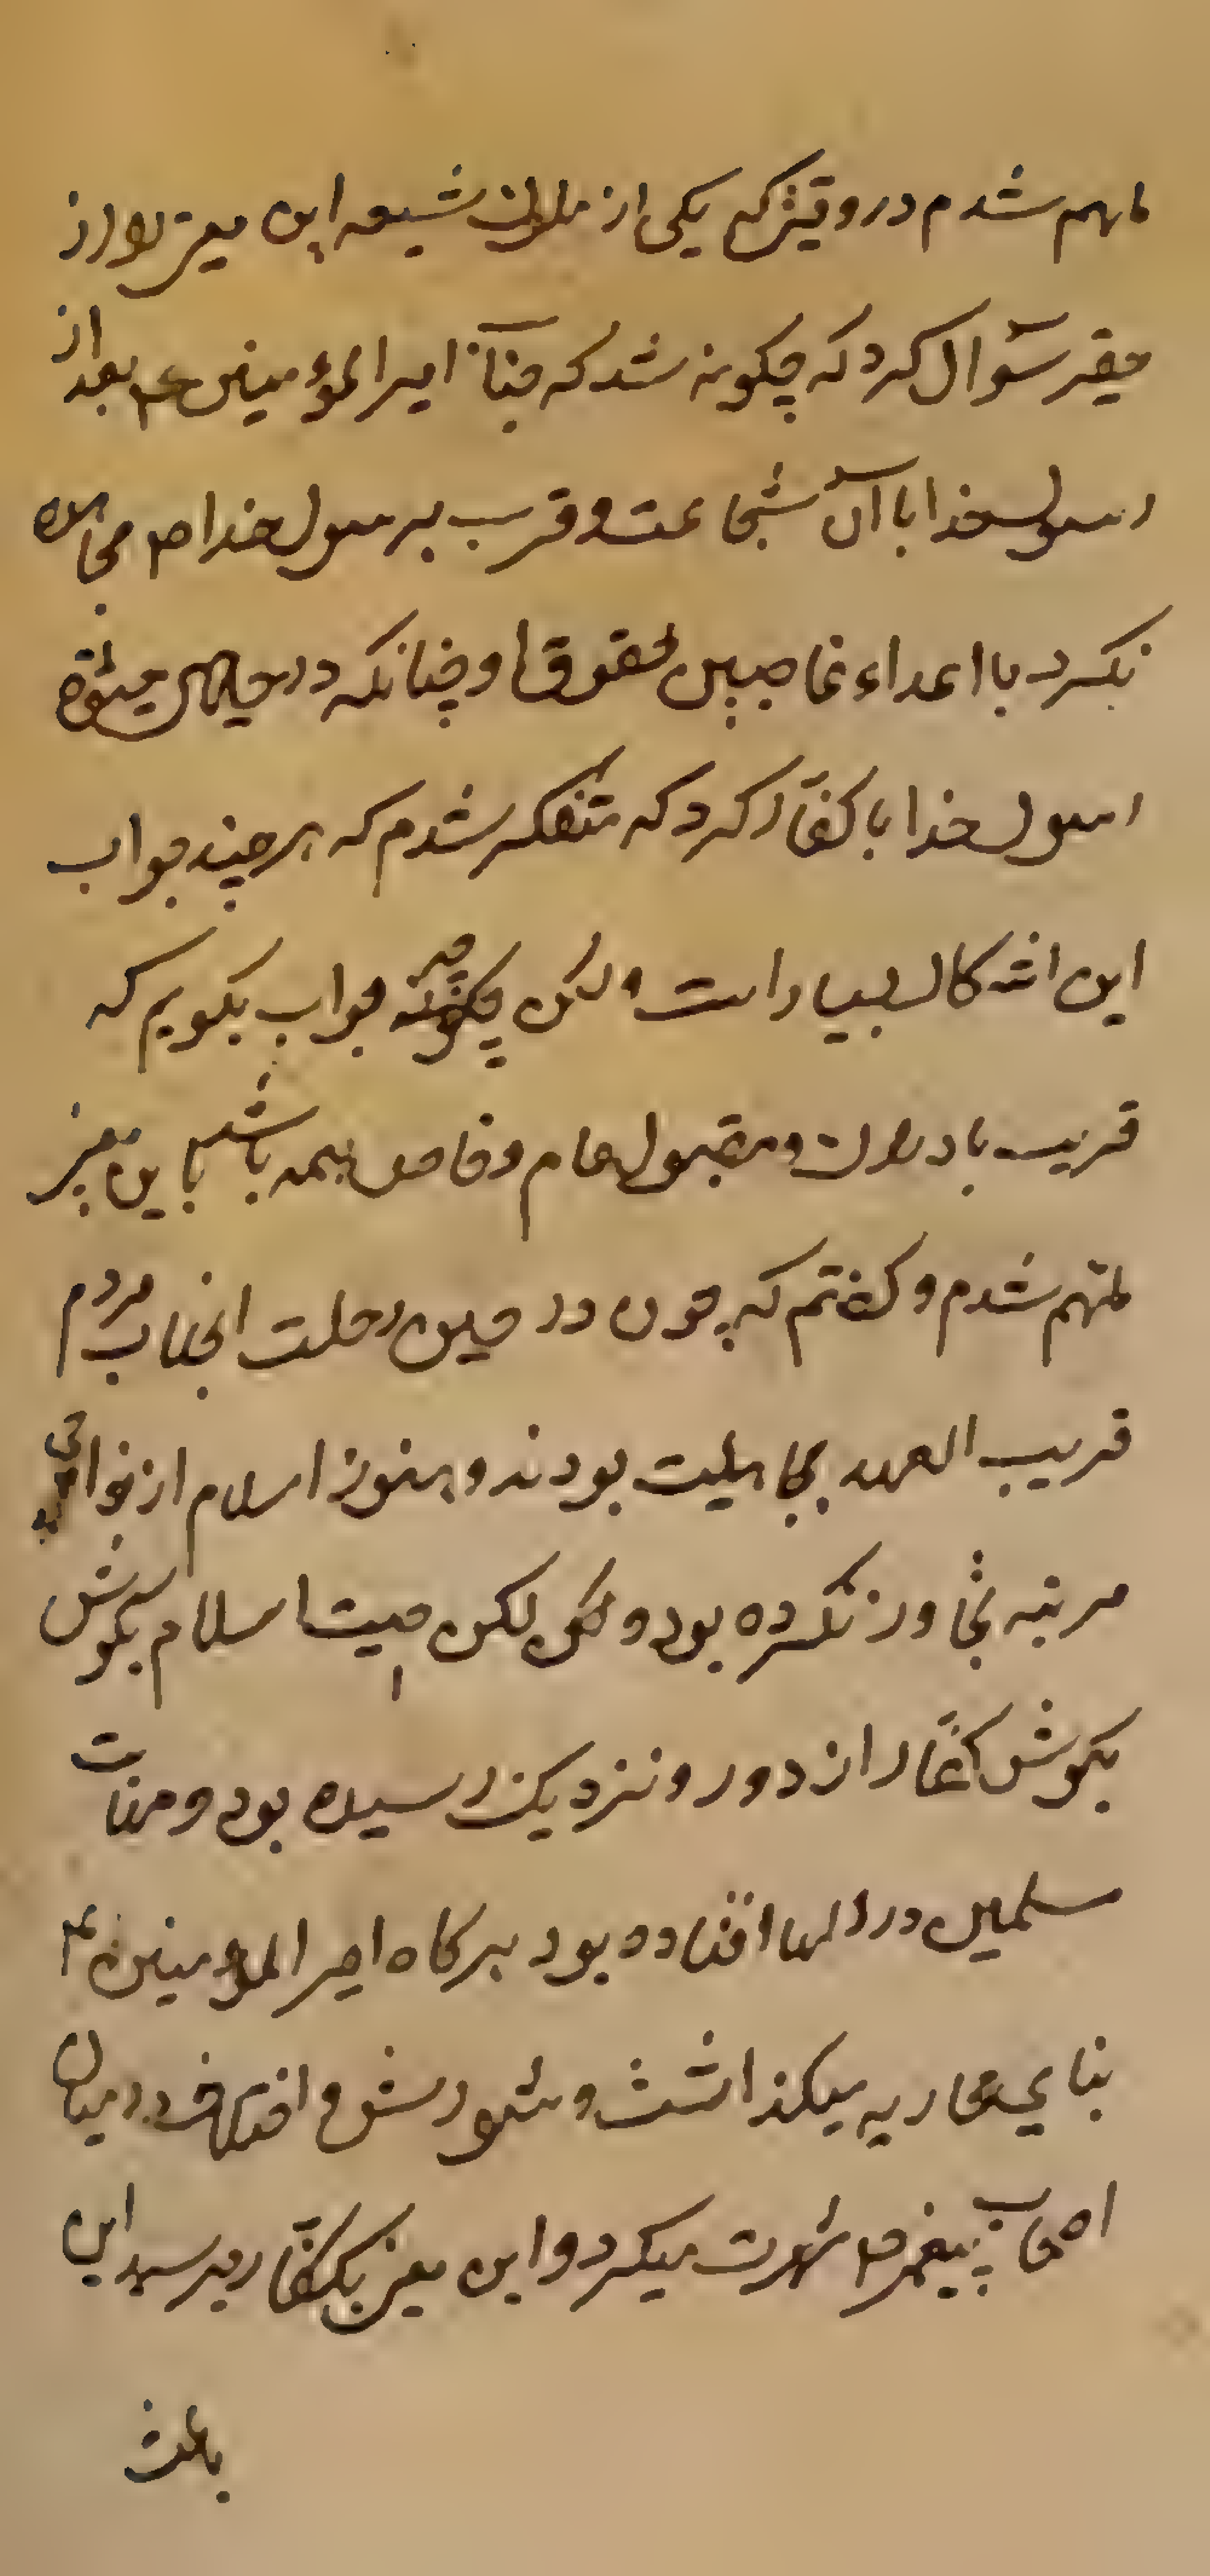 ملهم شدم در وقتیکه یکی از ملوک شیعه این معنی را از
حقیر سؤال کرد که چگونه شد که جناب امیرالمؤمنین ع بعد از
رسولخدا با آن شجاعت و قرب برسولخدا ص مجاهده
نکرد با اعداء غاصبین حقوق او چنانکه در حیات
رسولخدا با کفار کرد که متفکر شدم که هر چند جواب
این اشکال بسیار است ولکن چگونه جواب بگویم که
قریب باد و مقبول عام و خاص همه باشد باین معنی
ملهم شدم و گفتم که چون در حین رحلت انجناب مردم
قریب العهد بجاهلیت بودند و هنوز اسلام از
مرتبه تجاوز نکرده بود و لکن صیت اسلام بگوش
بگوش کفار از دور و نزدیک رسیده بود و مهابت
مسلمین در دلها افتاده بود هر گاه امیرالمؤمنین ع
بنای محاربه میگذاشت و شورش و اختلاف در میان
اصحاب پیغمبر ص شهرت میکرد و این معنی بکفار میرسید این
باعث